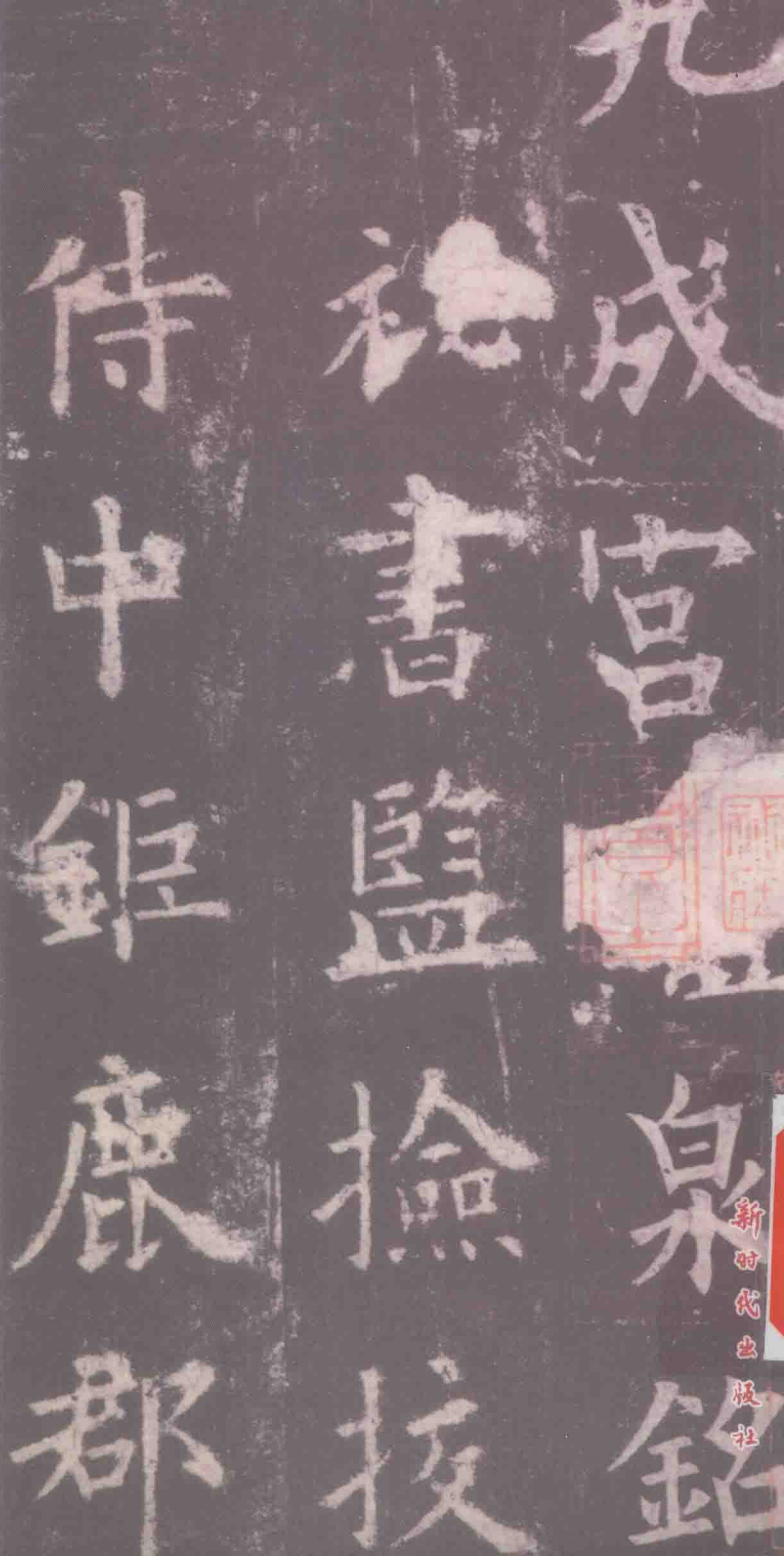 九成宮醴泉銘
祕書監撿挍
侍中鉅鹿郡
新时代出版社